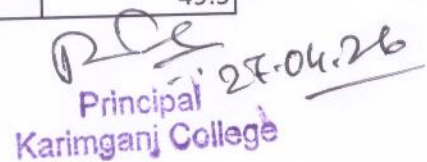 27.04.26
Principal
Karimganj College